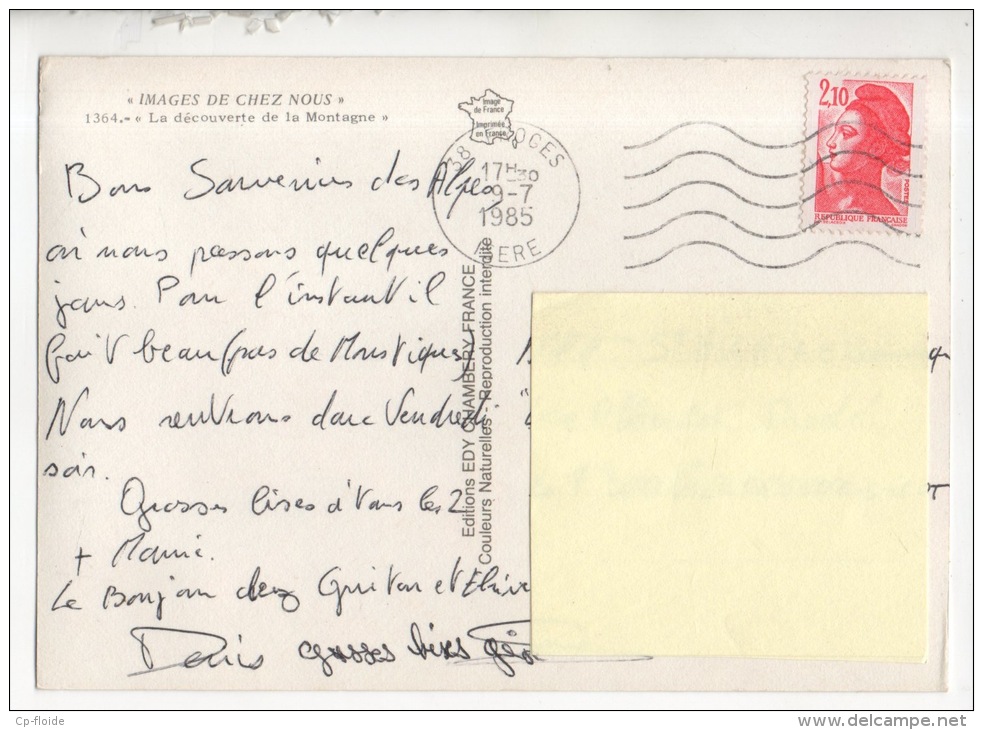 « IMAGES DE CHEZ NOUS »
1364.- « La découverte de la Montagne »
Image
de France
Imprimée
en France
38 OGES
17H30
9-7
1985
ISERE
2,10
POSTES
REPUBLIQUE FRANÇAISE
Bons Souvenirs des Alpes
où nous passons quelques
jours. Pour l'instant il
fait beau (pas de Moustiques)
Nous rentrons donc Vendredi
soir.
Grosses bises à Vous les 2
+ Mamie.
Le Bonjour chez Guitou et
Denis grosses bises
Editions EDY CHAMBERY FRANCE
Couleurs Naturelles - Reproduction interdite
Cp-floide
www.delcampe.net